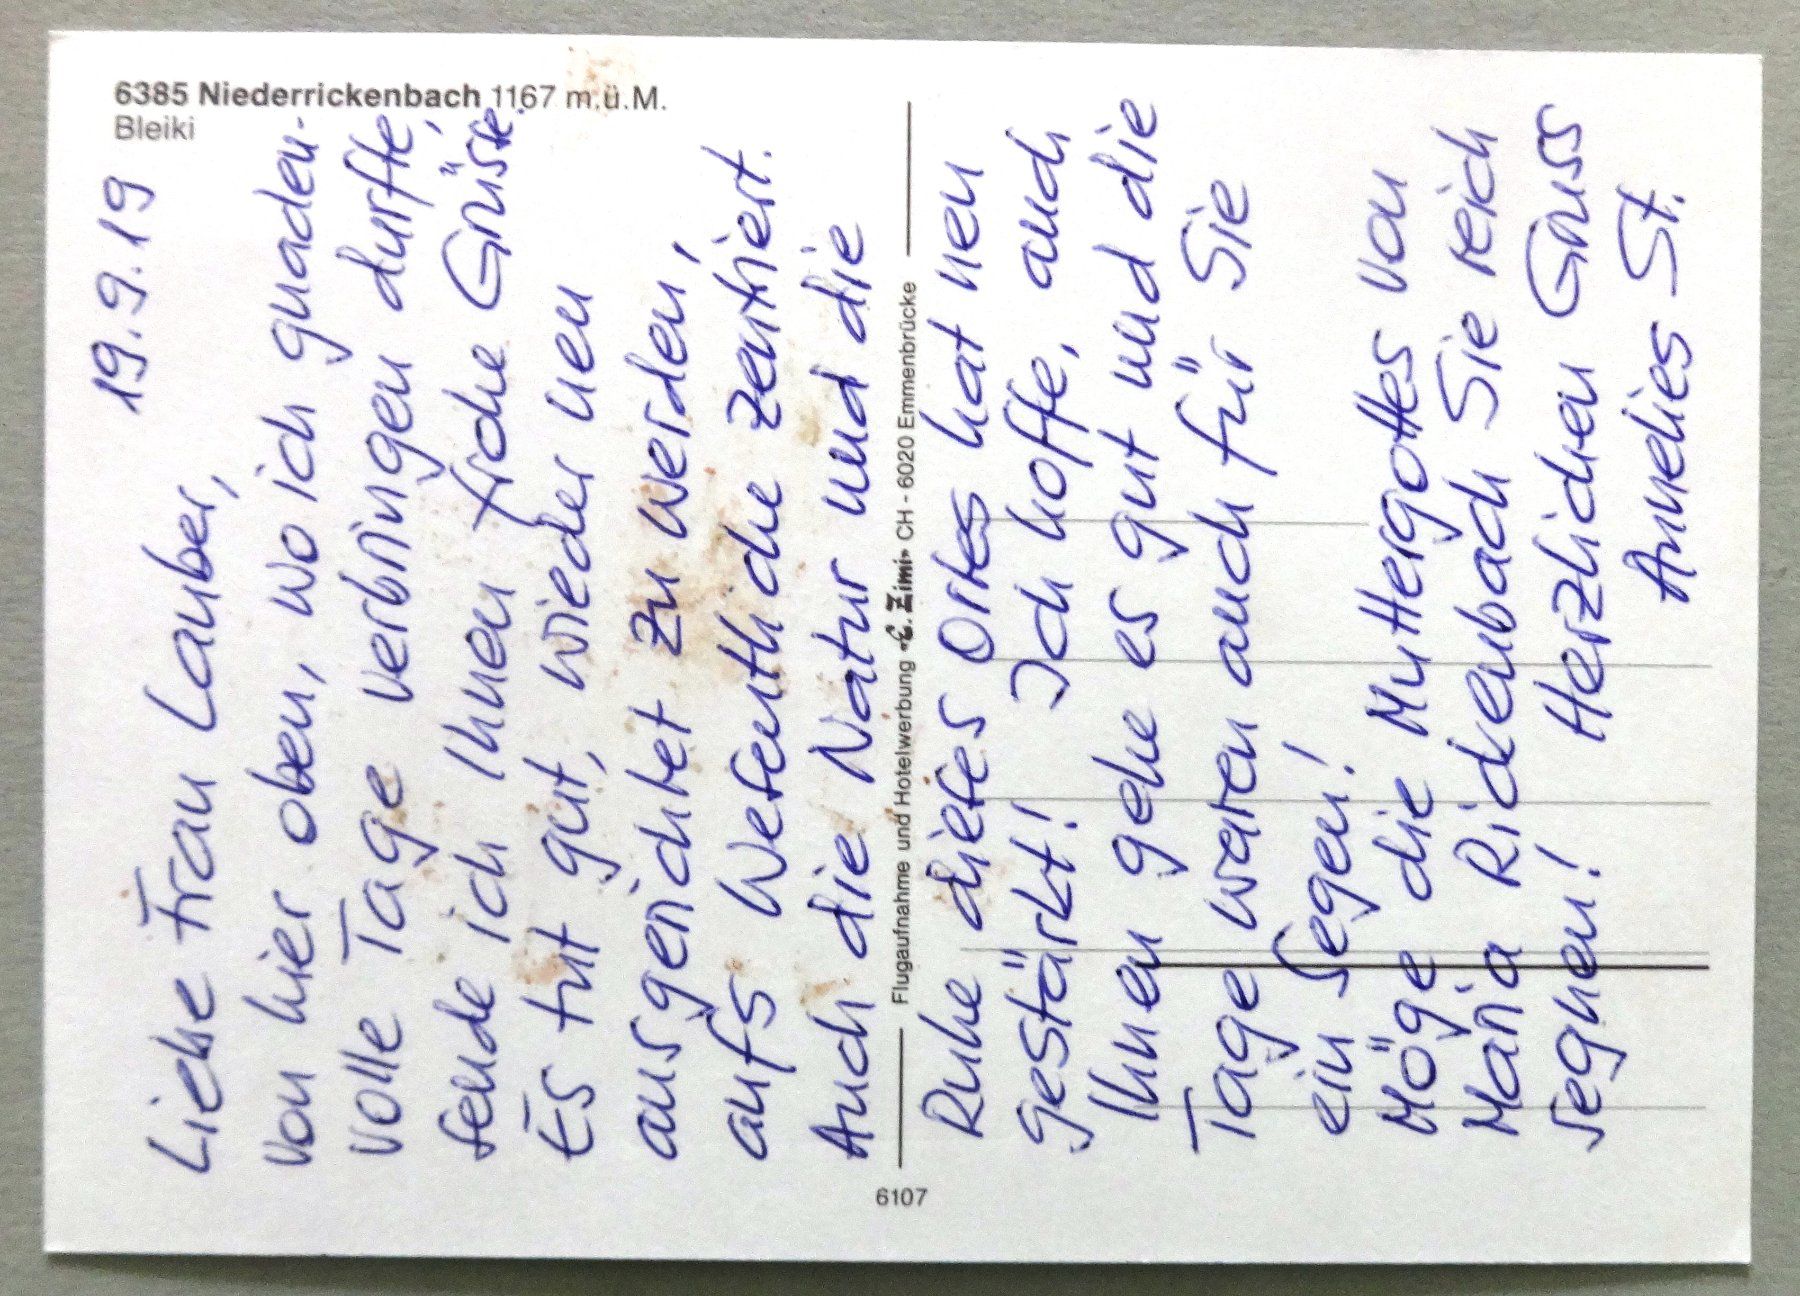 6385 Niederrickenbach 1167 m.ü.M.
Bleiki
19.9.19
Liebe Frau Lauber,
von hier oben, wo ich gnaden-
volle Tage verbringen durfte,
sende ich Ihnen frohe Grüsse.
Es tut gut, wieder neu
ausgerichtet zu werden,
aufs Wesentliche zentriert.
Auch die Natur und die
Ruhe dieses Ortes hat neu
gestärkt! Ich hoffe, auch
Ihnen gehe es gut und die
Tage waren auch für Sie
ein Segen!
Möge die Muttergottes von
Maria Rickenbach Sie reich
segnen! Herzlichen Gruss
Annelies St.
Flugaufnahme und Hotelwerbung «E. Zimi» CH - 6020 Emmenbrücke
6107